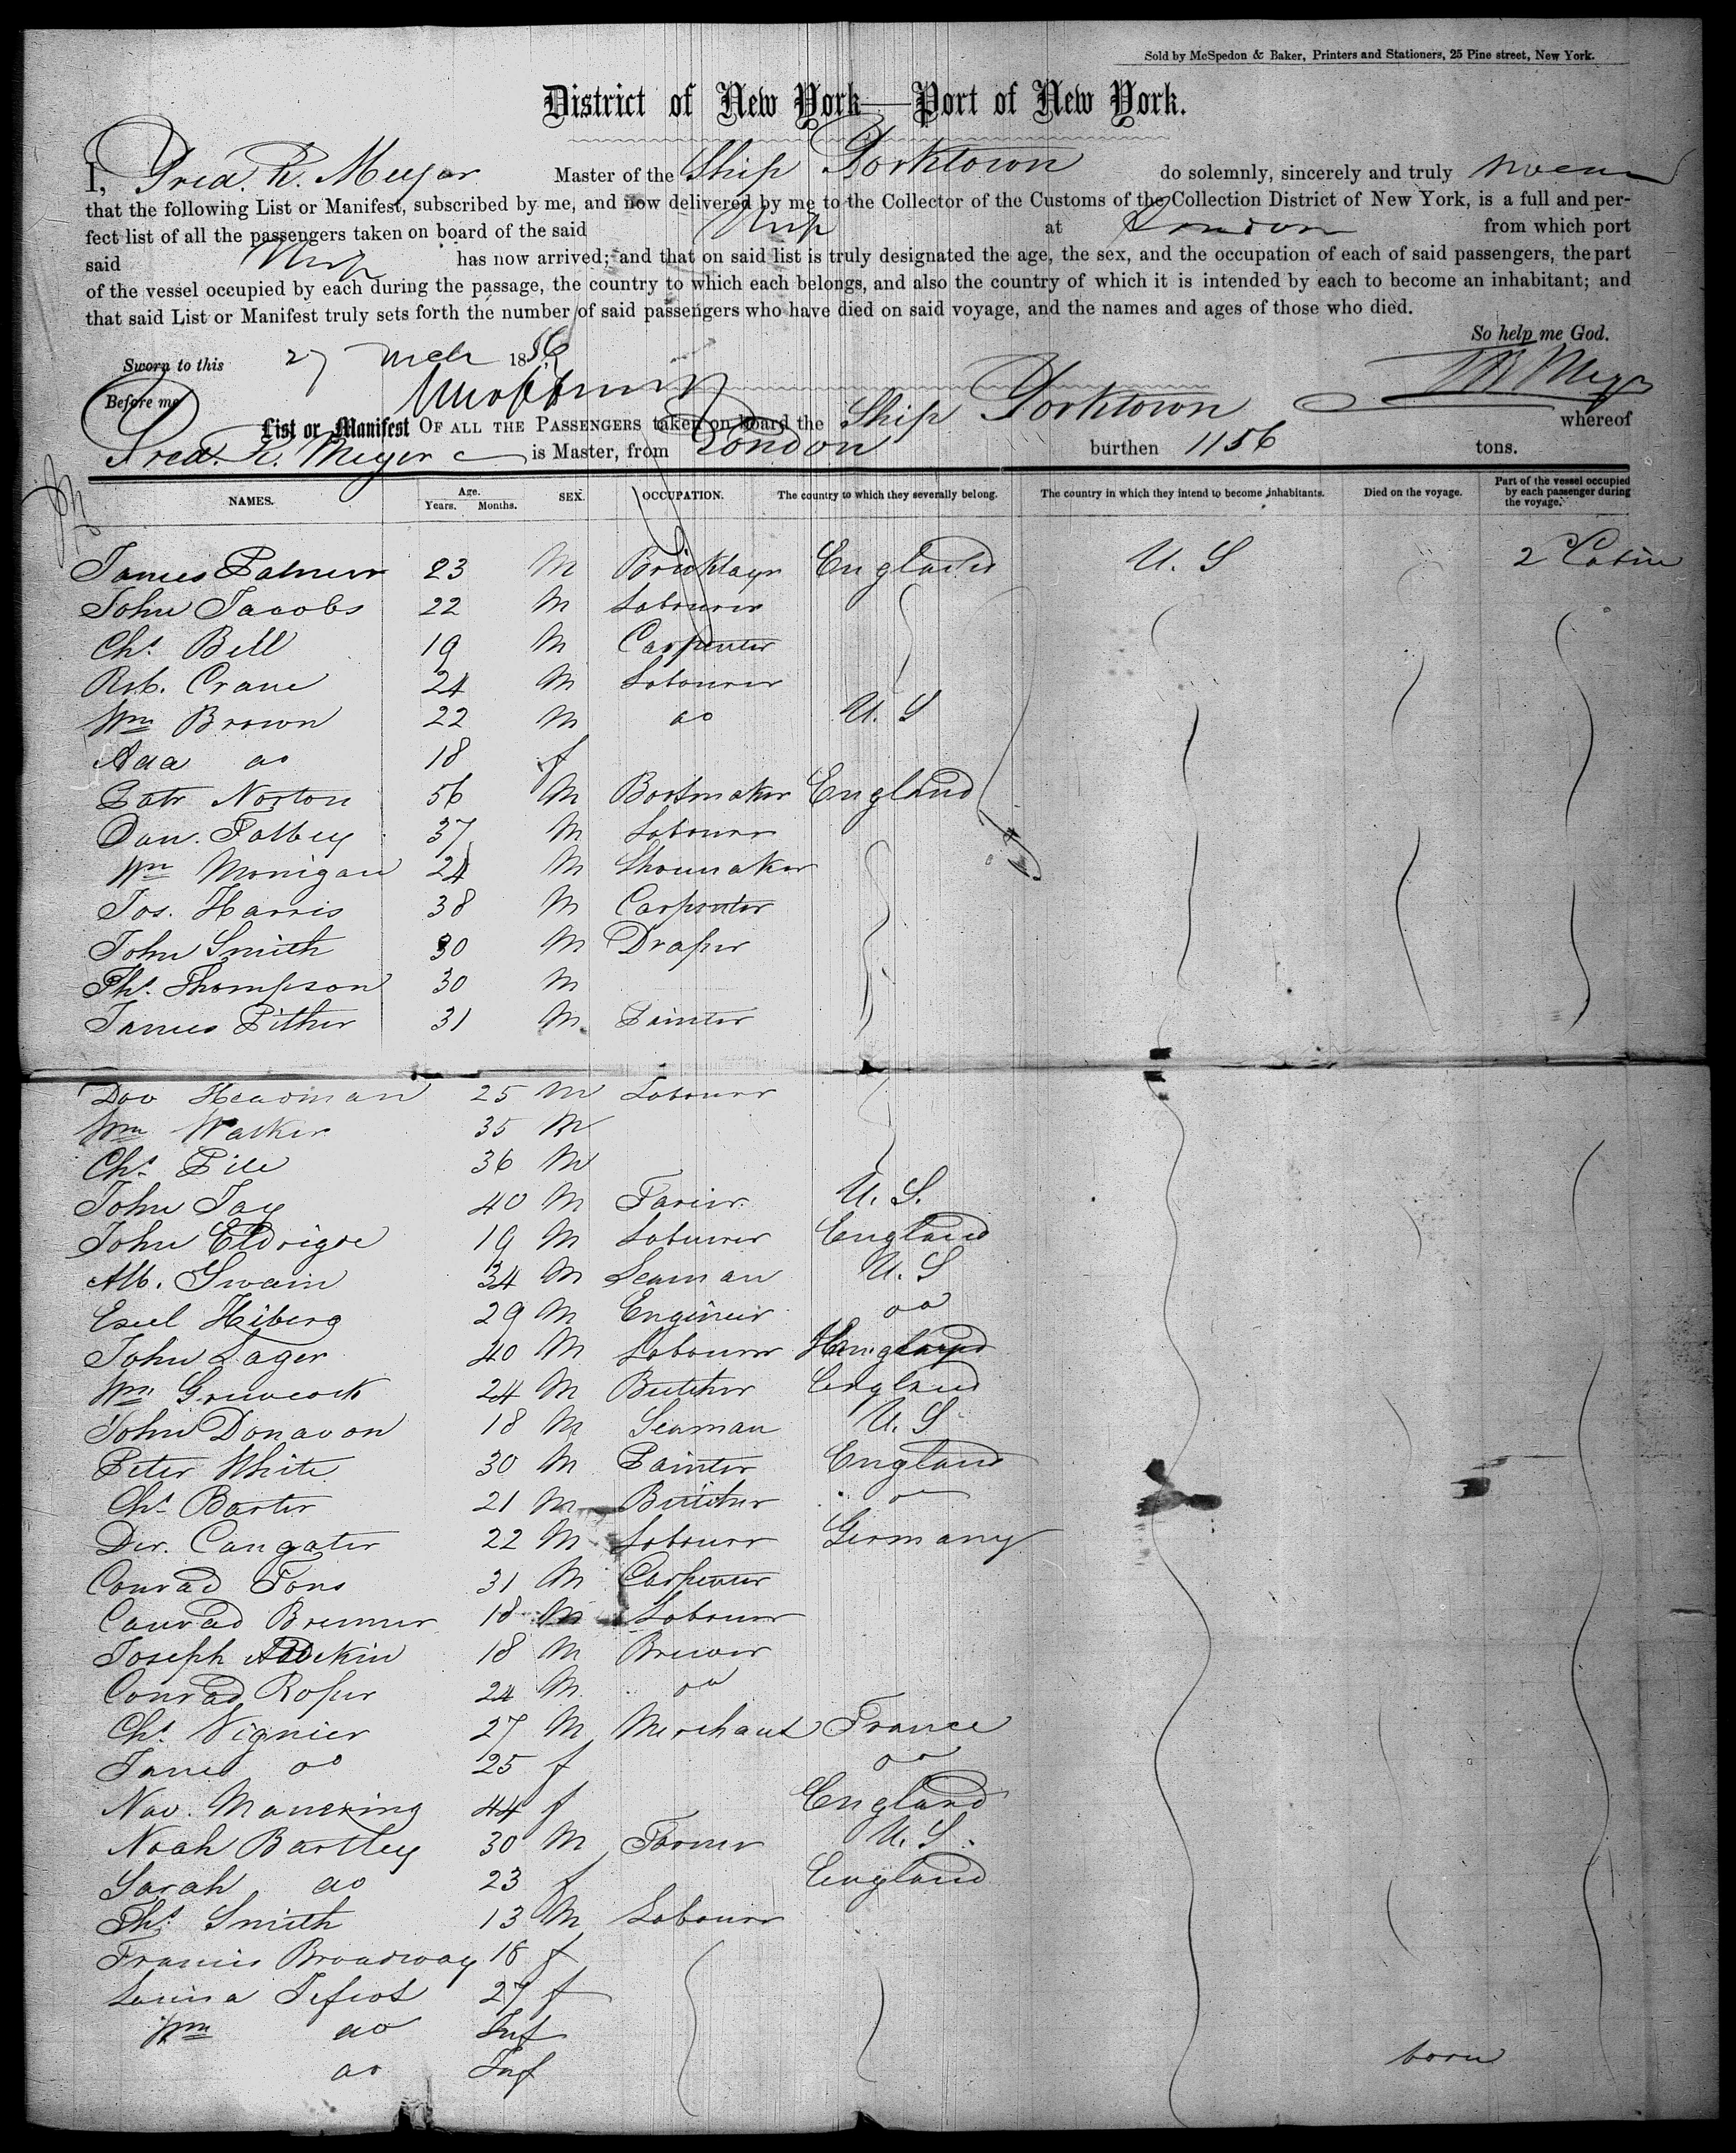 Sold by McSpedon & Baker, Printers and Stationers, 25 Pine street, New York.
District of New York—Port of New York.
I, Fred. R. Meyer Master of the Ship Yorktown do solemnly, sincerely and truly swear
that the following List or Manifest, subscribed by me, and now delivered by me to the Collector of the Customs of the Collection District of New York, is a full and per-
fect list of all the passengers taken on board of the said Ship at London from which port
said Ship has now arrived; and that on said list is truly designated the age, the sex, and the occupation of each of said passengers, the part
of the vessel occupied by each during the passage, the country to which each belongs, and also the country of which it is intended by each to become an inhabitant; and
that said List or Manifest truly sets forth the number of said passengers who have died on said voyage, and the names and ages of those who died.
So help me God.
Sworn to this 27 Mch 1856
Before me
List or Manifest OF ALL THE PASSENGERS taken on board the Ship Yorktown whereof
Fred. R. Meyer is Master, from London burthen 1156 tons.
NAMES. Age. Years. Months. SEX. OCCUPATION. The country to which they severally belong. The country in which they intend to become inhabitants. Died on the voyage. Part of the vessel occupied by each passenger during the voyage.
James Palmer 23 M Bricklayr England U. S 2 Cabin
John Jacobs 22 M Labourer
Chs. Bell 19 M Carpenter
Rob. Crane 24 M Labourer
Wm Brown 22 M do U. S
Ada do 18 f
Patr Norton 56 M Bootmaker England
Dan. Talbey 37 M Labourer
Wm Monigan 24 M Shoemaker
Jos. Harris 38 M Carpenter
John Smith 30 M Draper
Ths. Thompson 30 M
James Pither 31 M Painter
Dav Headman 25 M Labourer
Wm Walker 35 M
Chs. Pile 36 M
John Jay 40 M Farier U. S.
John Eldrigde 19 M Labourer England
Alb. Swain 34 M Seaman U. S
Hiberg 29 M Engineir do
John Lager 40 M Labourer
Wm Gruncock 24 M Butcher England
John Donavon 18 M Seaman U. S
Peter White 30 M Painter England
Chs Baxter 21 M Butcher do
Der. Cangater 22 M Labourer Germany
Conrad Fons 31 M Carpenter
Conrad Bremer 18 M Labourer
Joseph Addekin 18 M Brewer
Conrad Roper 24 M do
Chs. Vignier 27 M Merchant France
Jane do 25 f do
Nav. Manering 44 f England
Noah Bartley 30 M Farmer U. S.
Sarah do 23 f England
Ths. Smith 13 M Labourer
Francis Broadway 18 f
Louisa Tefiot 27 f
Wm do Inf
do Inf born